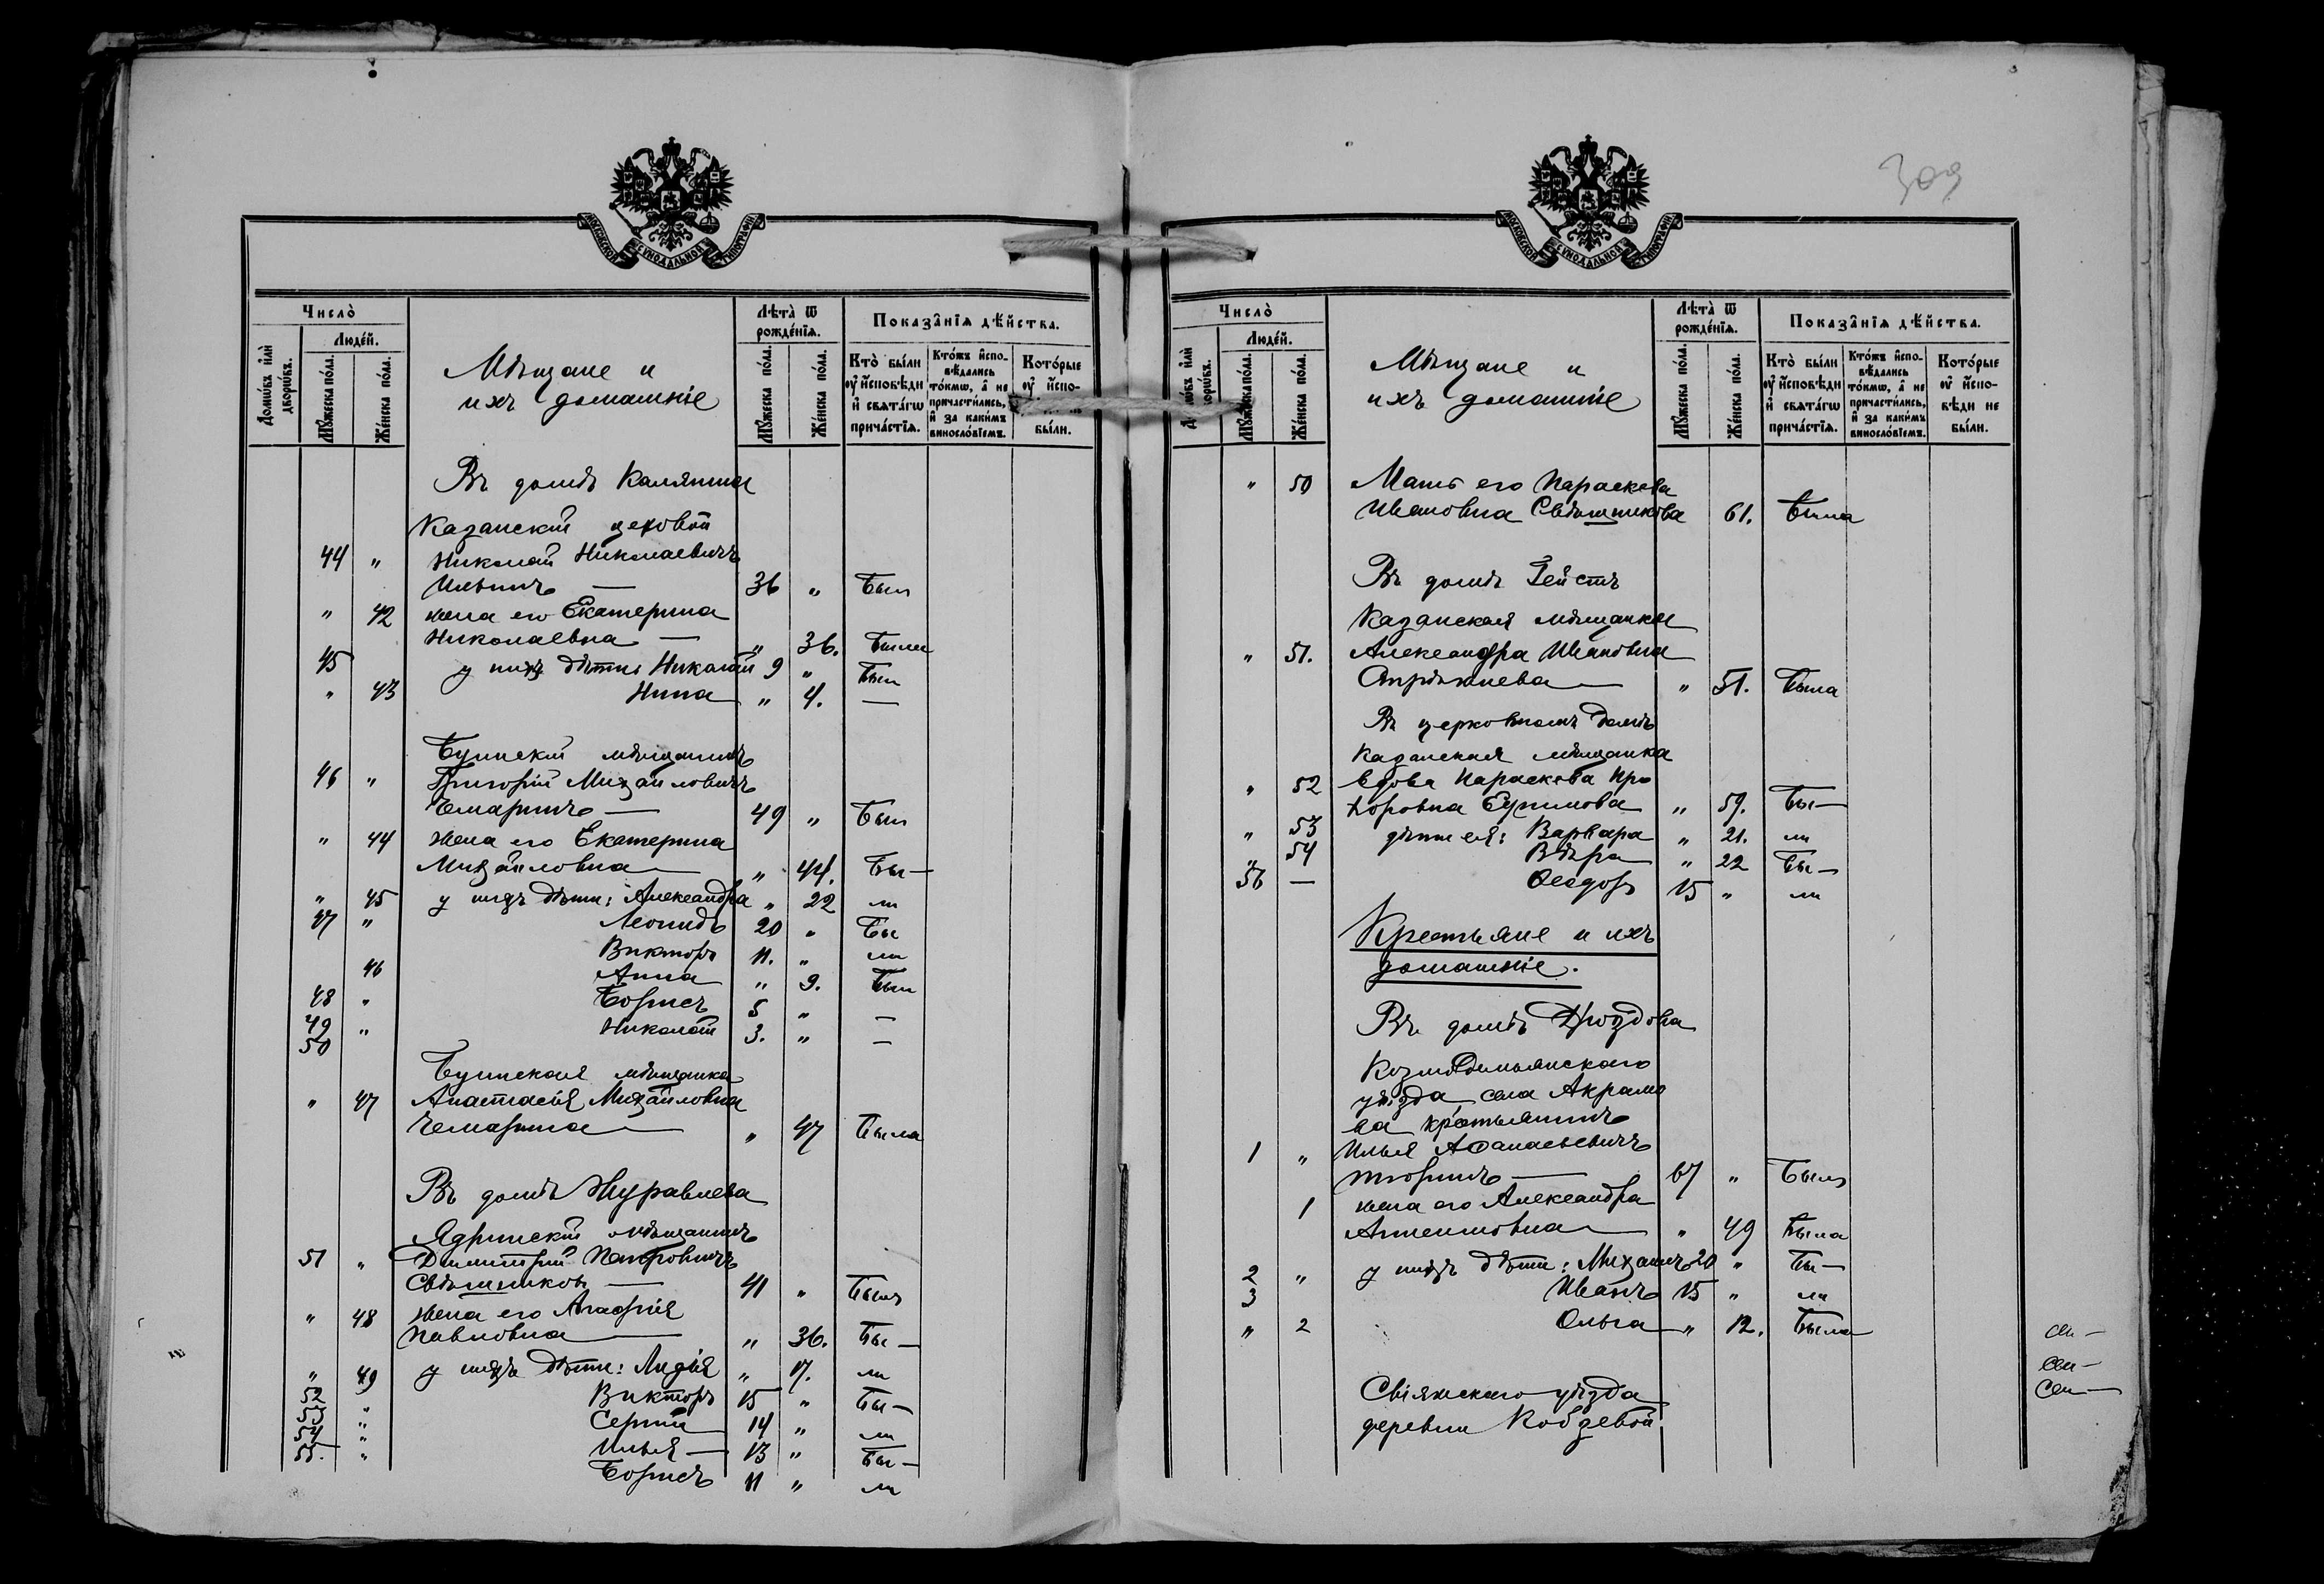 309
МОСКОВСКОЙ СѴНОДАЛЬНОЙ ТИПОГРАФІИ
Число̀
Домѡ́въ и҆лѝ дворѡ́въ.
Люде́й.
Мꙋ́жеска по́ла.
Же́нска по́ла.
Мѣщане и
ихъ домашніе
Лѣта̀ ѿ рожде́нїѧ.
Мꙋ́жеска по́ла.
Же́нска по́ла.
Показа̂нїѧ дѣ́йства.
Кто̀ бы́ли ᲂу҆ и҆́сповѣди и҆ свѧта́гѡ прича́стїѧ.
Кто́жъ и҆спо-вѣ́дались то́кмѡ, а҆ не причасти́лись, и҆ за каки́мъ виносло́вїемъ.
Кото́рые ᲂу҆ и҆́спо-
бы́ли.
Въ домѣ Калягина
Казанскій цеховой
44 " Николай Николаевичъ
Ильинъ — 36 " Былъ
" 42 жена его Екатерина
Николаевна — " 36. Была
45 у нихъ дѣти: Николай 9 " Былъ
" 43 Нина " 4. —
Буинскій мѣщанинъ
46 " Григорій Михайловичъ
Чемаринъ — 49 " Былъ
" 44 жена его Екатерина
Михайловна " 44. Бы—
" 45 у нихъ дѣти: Александра " 22 ли
47 " Леонидъ 20 " Бы
Викторъ 11. " ли
46 Анна " 9. Была
48 " Борисъ 5 " —
49 " Николай 3. " —
50
Буинская мѣщанка
" 47 Анастасія Михайловна
Чемарина " 47 Была
Въ домѣ Журавлева
Ядринскій мѣщанинъ
51 " Димитрій Петровичъ
Свѣшниковъ — 41 " Былъ
" 48 жена его Агафія
Павловна " 36. Бы—
" 49 у нихъ дѣти: Лидія " 17. ли
52 " Викторъ 15 " Бы—
53 " Сергій 14 " ли
54 " Илья — 13 " Бы—
55. " Борисъ 11 " ли
МОСКОВСКОЙ СѴНОДАЛЬНОЙ ТИПОГРАФІИ
Число̀
Люде́й.
Мꙋ́жеска по́ла.
Же́нска по́ла.
Мѣщане и
ихъ домашніе
Лѣта̀ ѿ рожде́нїѧ.
Мꙋ́жеска по́ла.
Же́нска по́ла.
Показа̂нїѧ дѣ́йства.
Кто̀ бы́ли ᲂу҆ и҆́сповѣди и҆ свѧта́гѡ прича́стїѧ.
Кто́жъ и҆спо-вѣ́дались то́кмѡ, а҆ не причасти́лись, и҆ за каки́мъ виносло́вїемъ.
Кото́рые ᲂу҆ и҆́спо-вѣди не бы́ли.
" 50 Мать его Параскева
Ивановна Свѣшникова 61. Была
Въ домѣ Гейстъ
Казанская мѣщанка
" 51. Александра Ивановна
" 51. Была
Въ церковномъ домѣ
Казанская мѣщанка
" 52 вдова Параскева Про
хоровна " 59. Бы—
" 53 дѣти ея: Варвара " 21. ли
" 54 Вѣра " 22 Бы—
56 — Ѳеодоръ 15 " ли
Крестьяне и ихъ
домашніе.
Въ домѣ Дроздова
Козмодемьянскаго
уѣзда, села Акрамо
ва крестьянинъ
1 " Илья Аѳанасьевичъ
— 67 " Былъ
1 жена его Александра
" 49 Была
2 " у нихъ дѣти: Михаилъ 20 " Бы—
3 Иванъ 15 " ли
" 2 Ольга " 12. Была
Свіяжскаго уѣзда
деревни